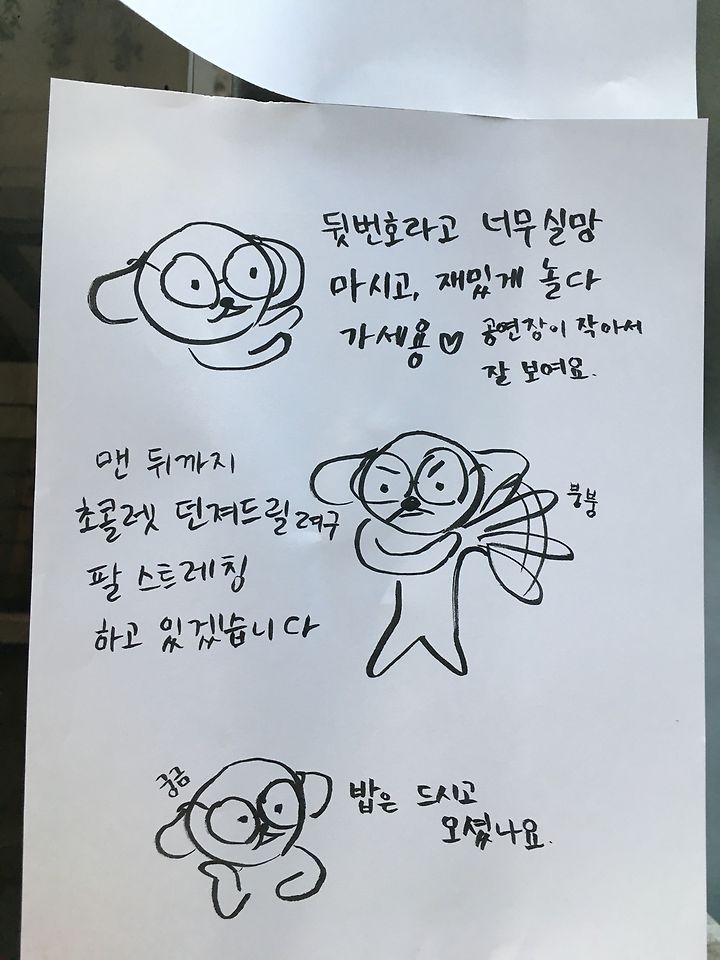 뒷번호라고 너무 실망
마시고, 재밌게 놀다
가세용♡ 공연장이 작아서
잘 보여요.
맨 뒤까지
초콜렛 던져드릴려구
붕붕
팔 스트레칭
하고 있겠습니다
궁금
밥은 드시고
오셨나요.